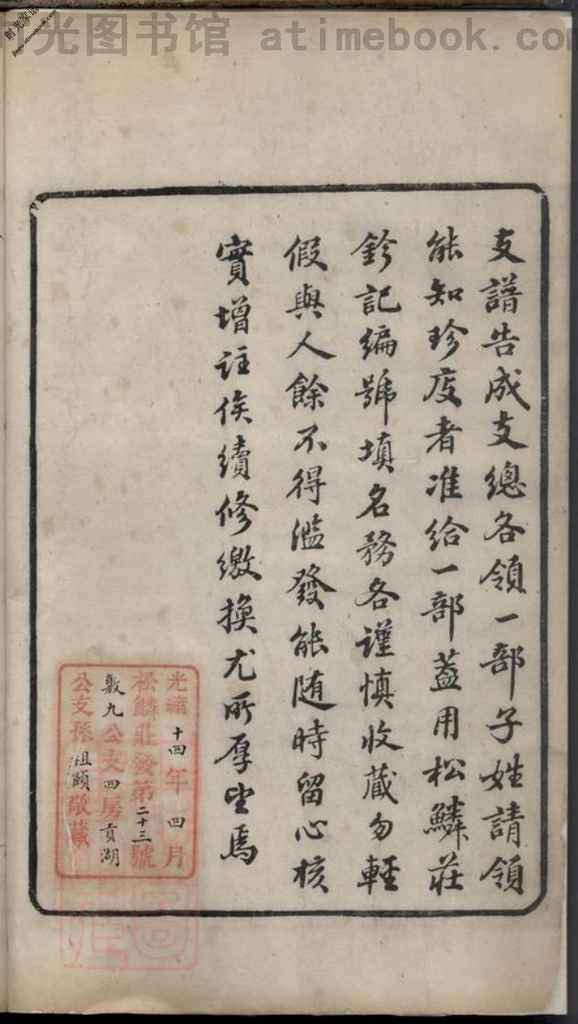 时光图书馆 atimebook.com
支譜告成支總各領一部子姓請領
能知珍庋者准給一部蓋用松鱗莊
鈐記編號填名務各謹慎收藏勿輕
假與人餘不得濫發能随時留心核
實增註俟續修繳換尤所厚望焉
光緒十四年四月
松鱗莊發第二十三號
敷九公支四房貢湖
公支孫祖頤敬藏